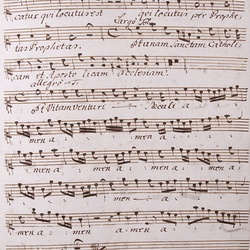 catur qui locutus est qui locutus per Prophe
Largo
tas Prophetas. Et unam Sanctam Catholi
cam et Aposto licam Ecclesiam.
allegro
Et Vitam Venturi Seculi a
men a men a
men a men a
men a men a
men a men a men.